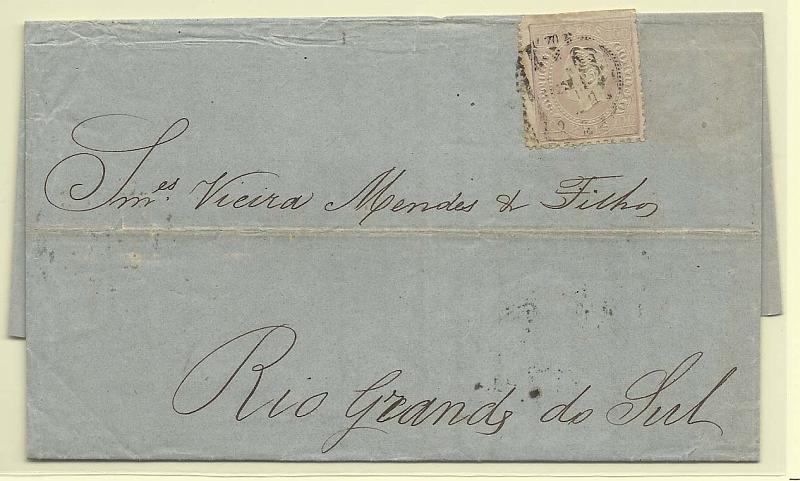 Smes. Vieira Mendes & Filhos
Rio Grande do Sul